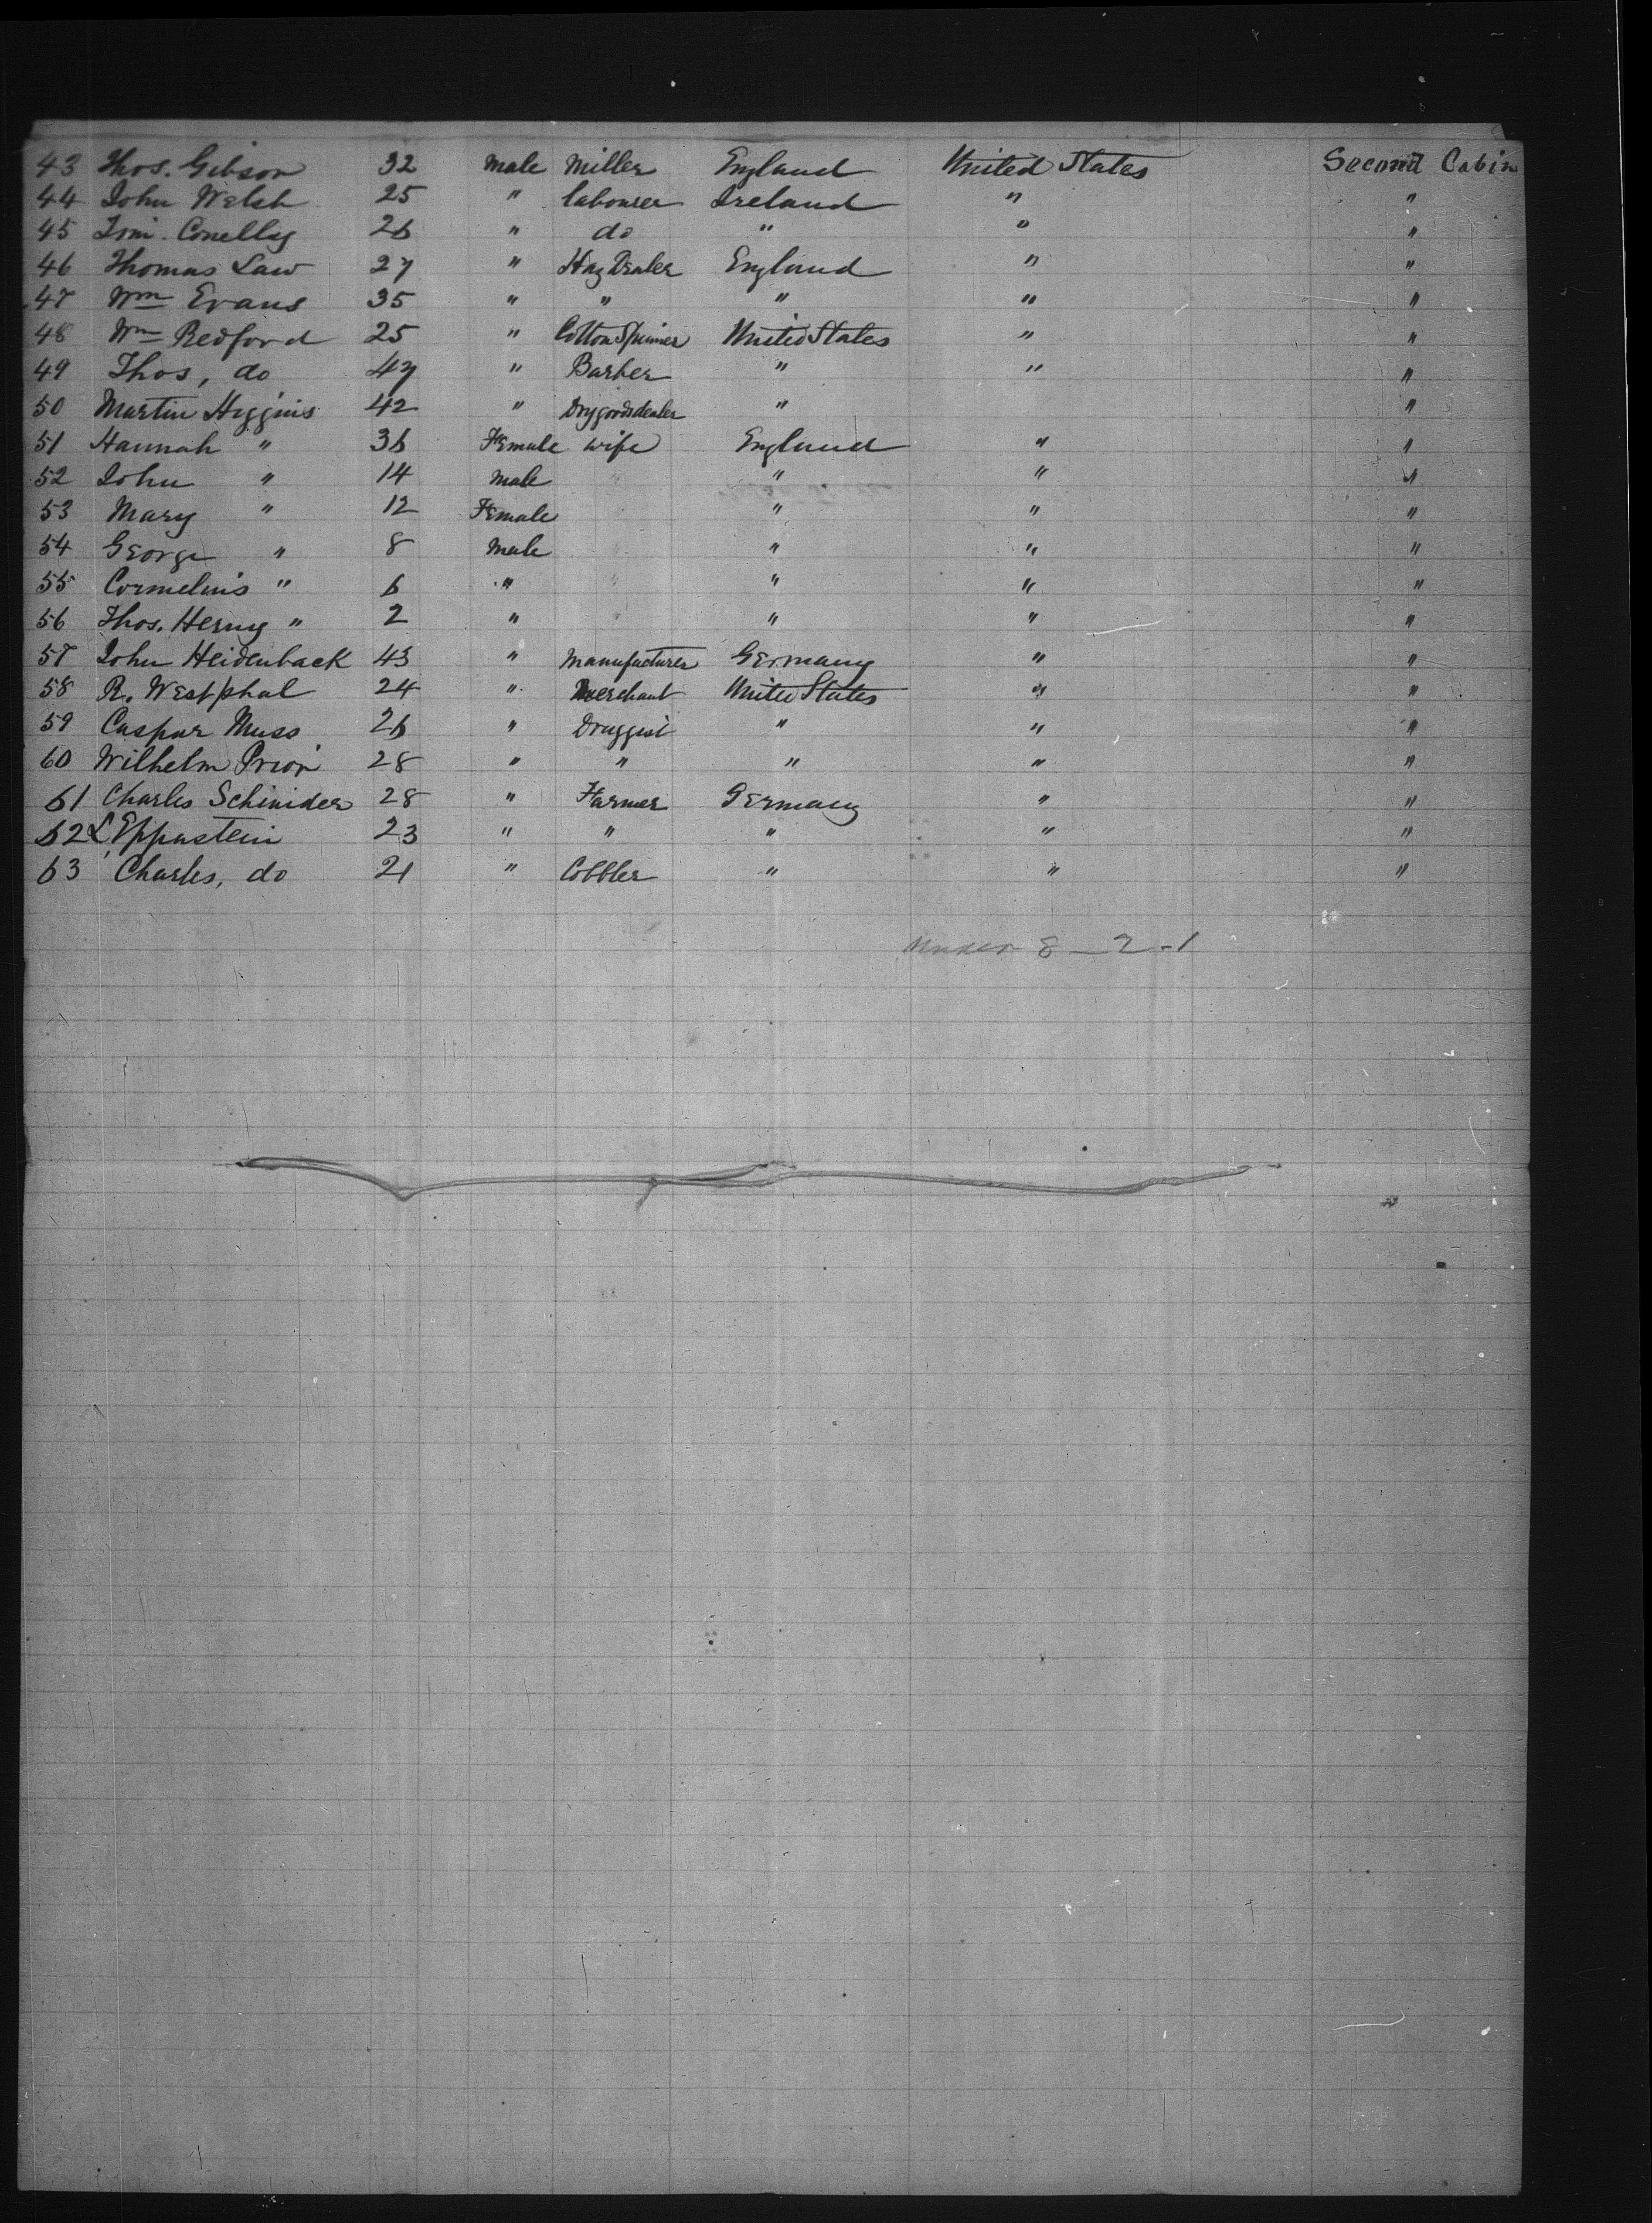 43 Thos. Gibson 32 Male Miller England United States Second Cabin
44 John Welsh 25 " labourer Ireland " "
45 Tim Conelly 26 " do " " "
46 Thomas Law 27 " Hay Dealer England " "
47 Wm Evans 35 " " " " "
48 Wm Redford 25 " Cotton Spinner United States " "
49 Thos, do 47 " Barber " " "
50 Martin Higgins 42 " Drygoodsdealer " "
51 Hannah " 36 Female wife England " "
52 John " 14 Male " " "
53 Mary " 12 Female " " "
54 George " 8 Male " " "
55 Cornelius " 6 " " " "
56 Thos. Henry " 2 " " " "
57 John Heidenback 43 " Manufacturer Germany " "
58 R. Westphal 24 " Merchant United States " "
59 Caspar Muss 26 " Druggist " " "
60 Wilhelm Prior 28 " " " " "
61 Charles Schinider 28 " Farmer Germany " "
62 L. Eppustein 23 " " " " "
63 Charles, do 21 " Cobbler " " "
Under 8 - 2 - 1